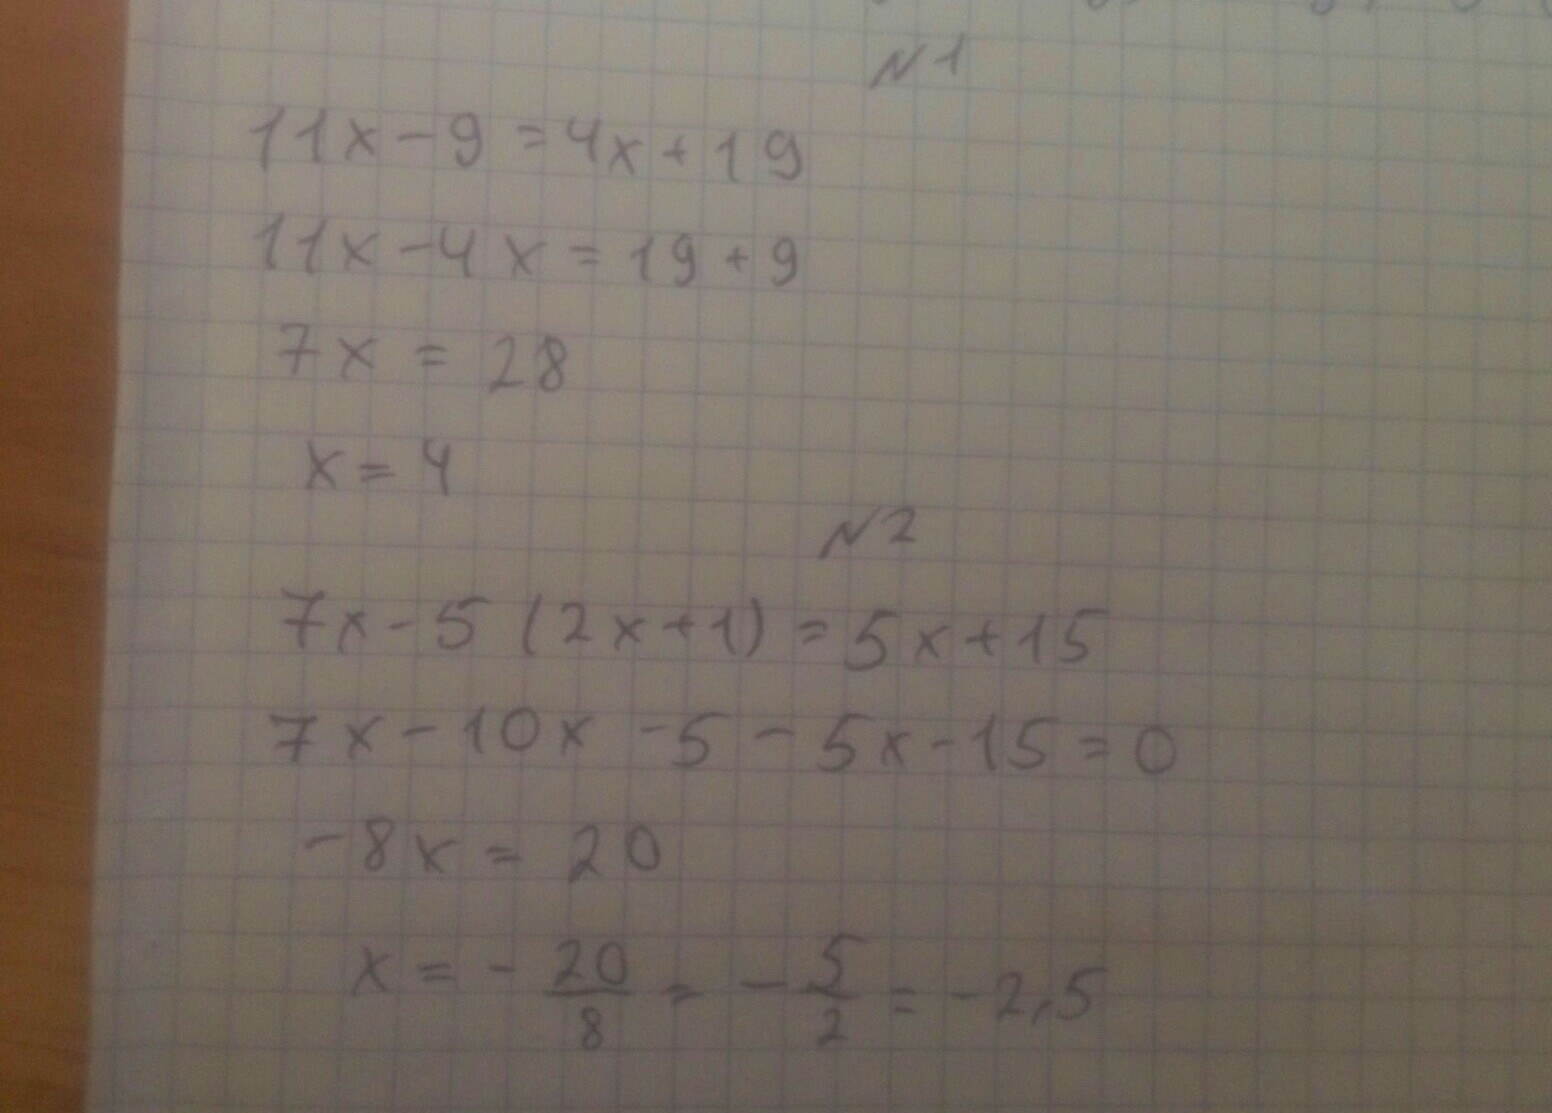 N1
11x-9=4x+19
11x-4x=19+9
7x=28
x=4
N2
7x-5(2x+1)=5x+15
7x-10x-5-5x-15=0
-8x=20
x=-20/8=-5/2=-2,5